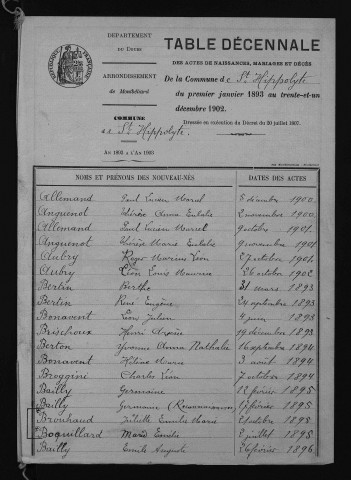 DÉPARTEMENT
DU DOUBS
ARRONDISSEMENT
de Montbéliard
COMMUNE
de St. Hippolyte
AN 1893 à l'An 1903
TABLE DÉCENNALE
DES ACTES DE NAISSANCES, MARIAGES ET DÉCÈS
De la Commune de St. Hippolyte
du premier janvier 1893 au trente-et-un
décembre 1902.
Dressée en exécution du Décret du 20 juillet 1807.
NOMS ET PRÉNOMS DES NOUVEAU-NÉS DATES DES ACTES
Allemand Paul Lucien Marcel 5 décembre 1900
Anguenot Thérèse Anna Eulalie 2 novembre 1900
Allemand Paul Lucien Marcel 9 octobre 1901
Anguenot Marie Eulalie 9 novembre 1901
Aubry Roger Marius Léon 27 octobre 1901
Aubry Léon Louis Maurice 26 octobre 1902
Bertin Berthe 31 mars 1893
Bertin René Eugène 24 septembre 1893
Bonavent Léon Julien 4 juin 1893
Henri 19 décembre 1893
Berton Yvonne Anna Nathalie 16 septembre 1894
Bonavent Hélène 3 août 1894
Broggini Charles Léon 7 octobre 1894
Bailly Germaine 12 février 1895
Bailly Germaine (Reconnaissance) 17 février 1895
Marie 21 octobre 1895
Boquillard Marie Emilie 2 juillet 1895
Bailly Emile Auguste 26 février 1896